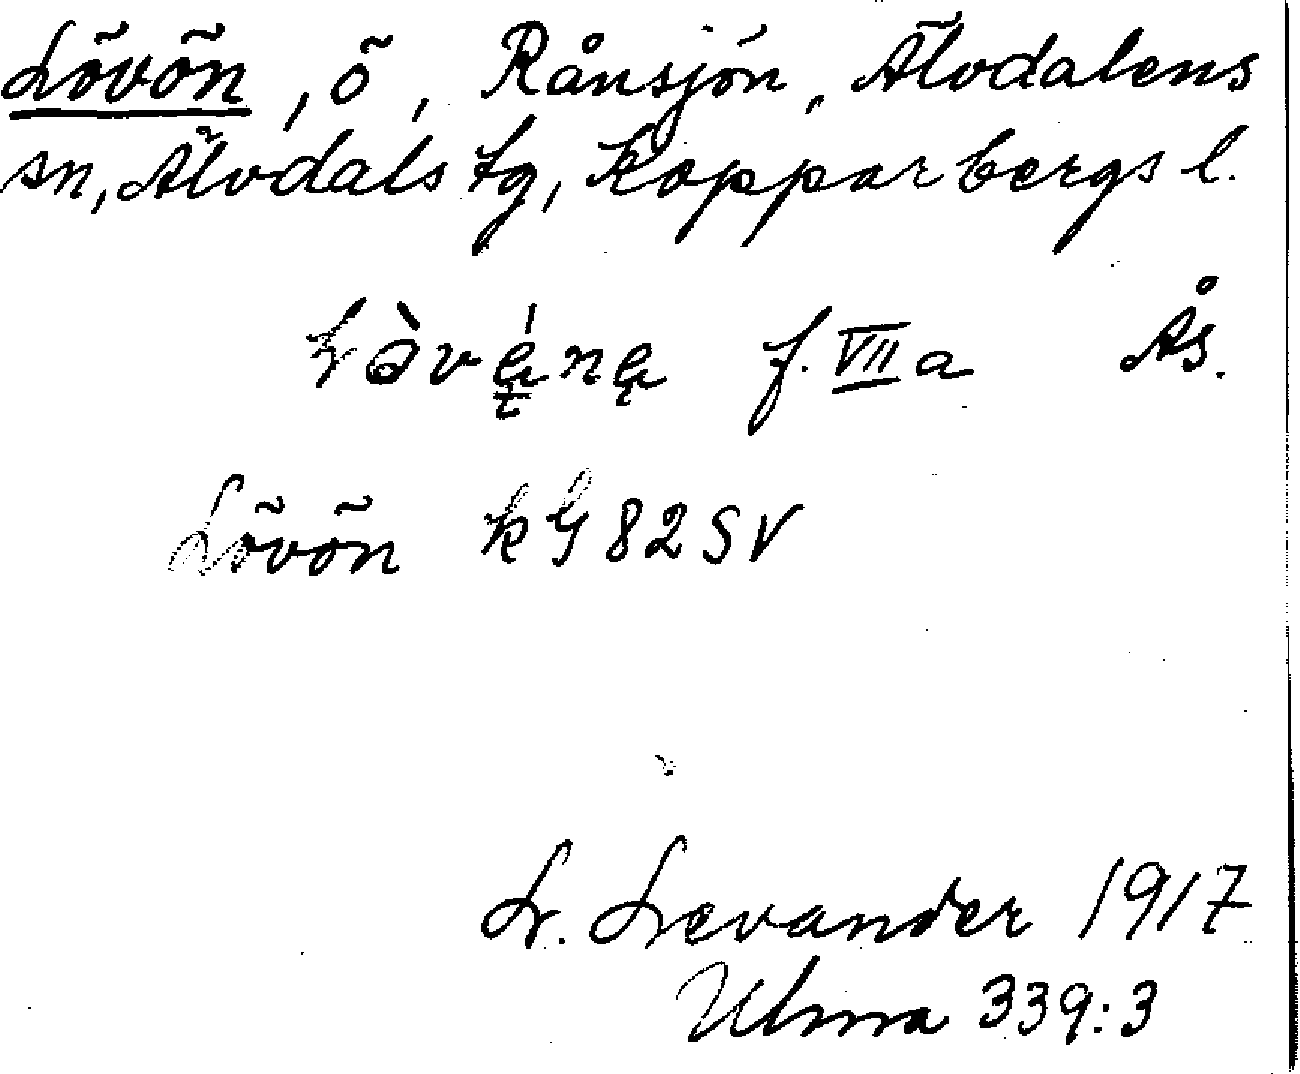 Lövön, ö, Rånsjön, Älvdalens
sn, Älvdals tg, Kopparbergs l.
f. VII a Ås.
Lövön kG 82 SV
L. Levander 1917
Ulma 339:3